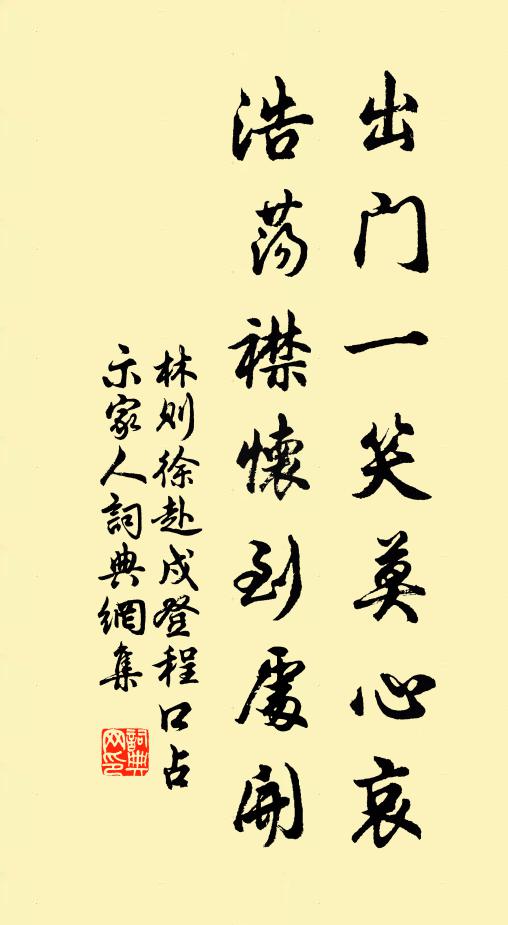 出门一笑莫心哀
浩荡襟懷到處開
林则徐赴戍登程口占
示家人詞典網集
詞典
网印